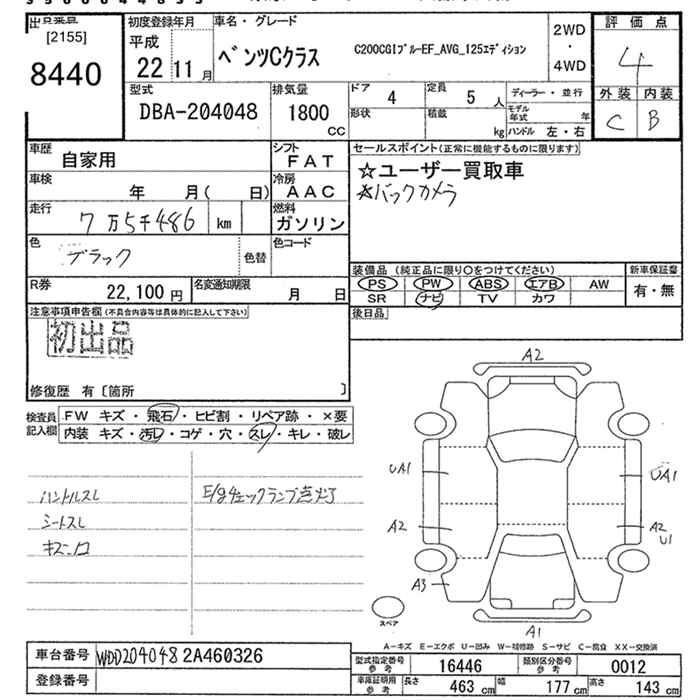 出品業者
[2155]
8440
初度登録年月
平成
22 11月
車名・グレード
ベンツCクラス
C200CGIブルーEF_AVG_125エディション
2WD
・
4WD
評価点
4
外装 内装
C B
型式
DBA-204048
排気量
1800
CC
ドア 4
定員 5 人
形状
積載 kg
ディーラー・並行
モデル年式 年
ハンドル 左・右
車歴 自家用
シフト FAT
車検 年 月( 日)
冷房 AAC
走行 7万5千486 km
燃料 ガソリン
色 ブラック
色替
色コード
R券 22,100 円
名変通知期限 月 日
セールスポイント(正常に機能するものに限ります)
☆ユーザー買取車
☆バックカメラ
装備品 (純正品に限り○をつけてください)
新車保証書
PS PW ABS エアB AW
有・無
SR ナビ TV カワ
後日品
注意事項申告欄(不具合内容等は具体的に記入して下さい)
初出品
修復歴 有〔箇所 〕
検査員記入欄
FW キズ・飛石・ヒビ割・リペア跡・×要
内装 キズ・汚レ・コゲ・穴・スレ・キレ・破レ
ハンドルスレ
シートスレ
E/gチェックランプ点灯
A2
UA1
UA1
A2
A2
U1
A3
A1
スペア
A-キズ E-エクボ U-凹み W-補修跡 S-サビ C-腐食 XX-交換済
車台番号 WDD204048 2A460326
登録番号
型式指定番号 参考 16446
類別区分番号 参考 0012
車庫証明用 参考 長さ 463 cm 幅 177 cm 高さ 143 cm